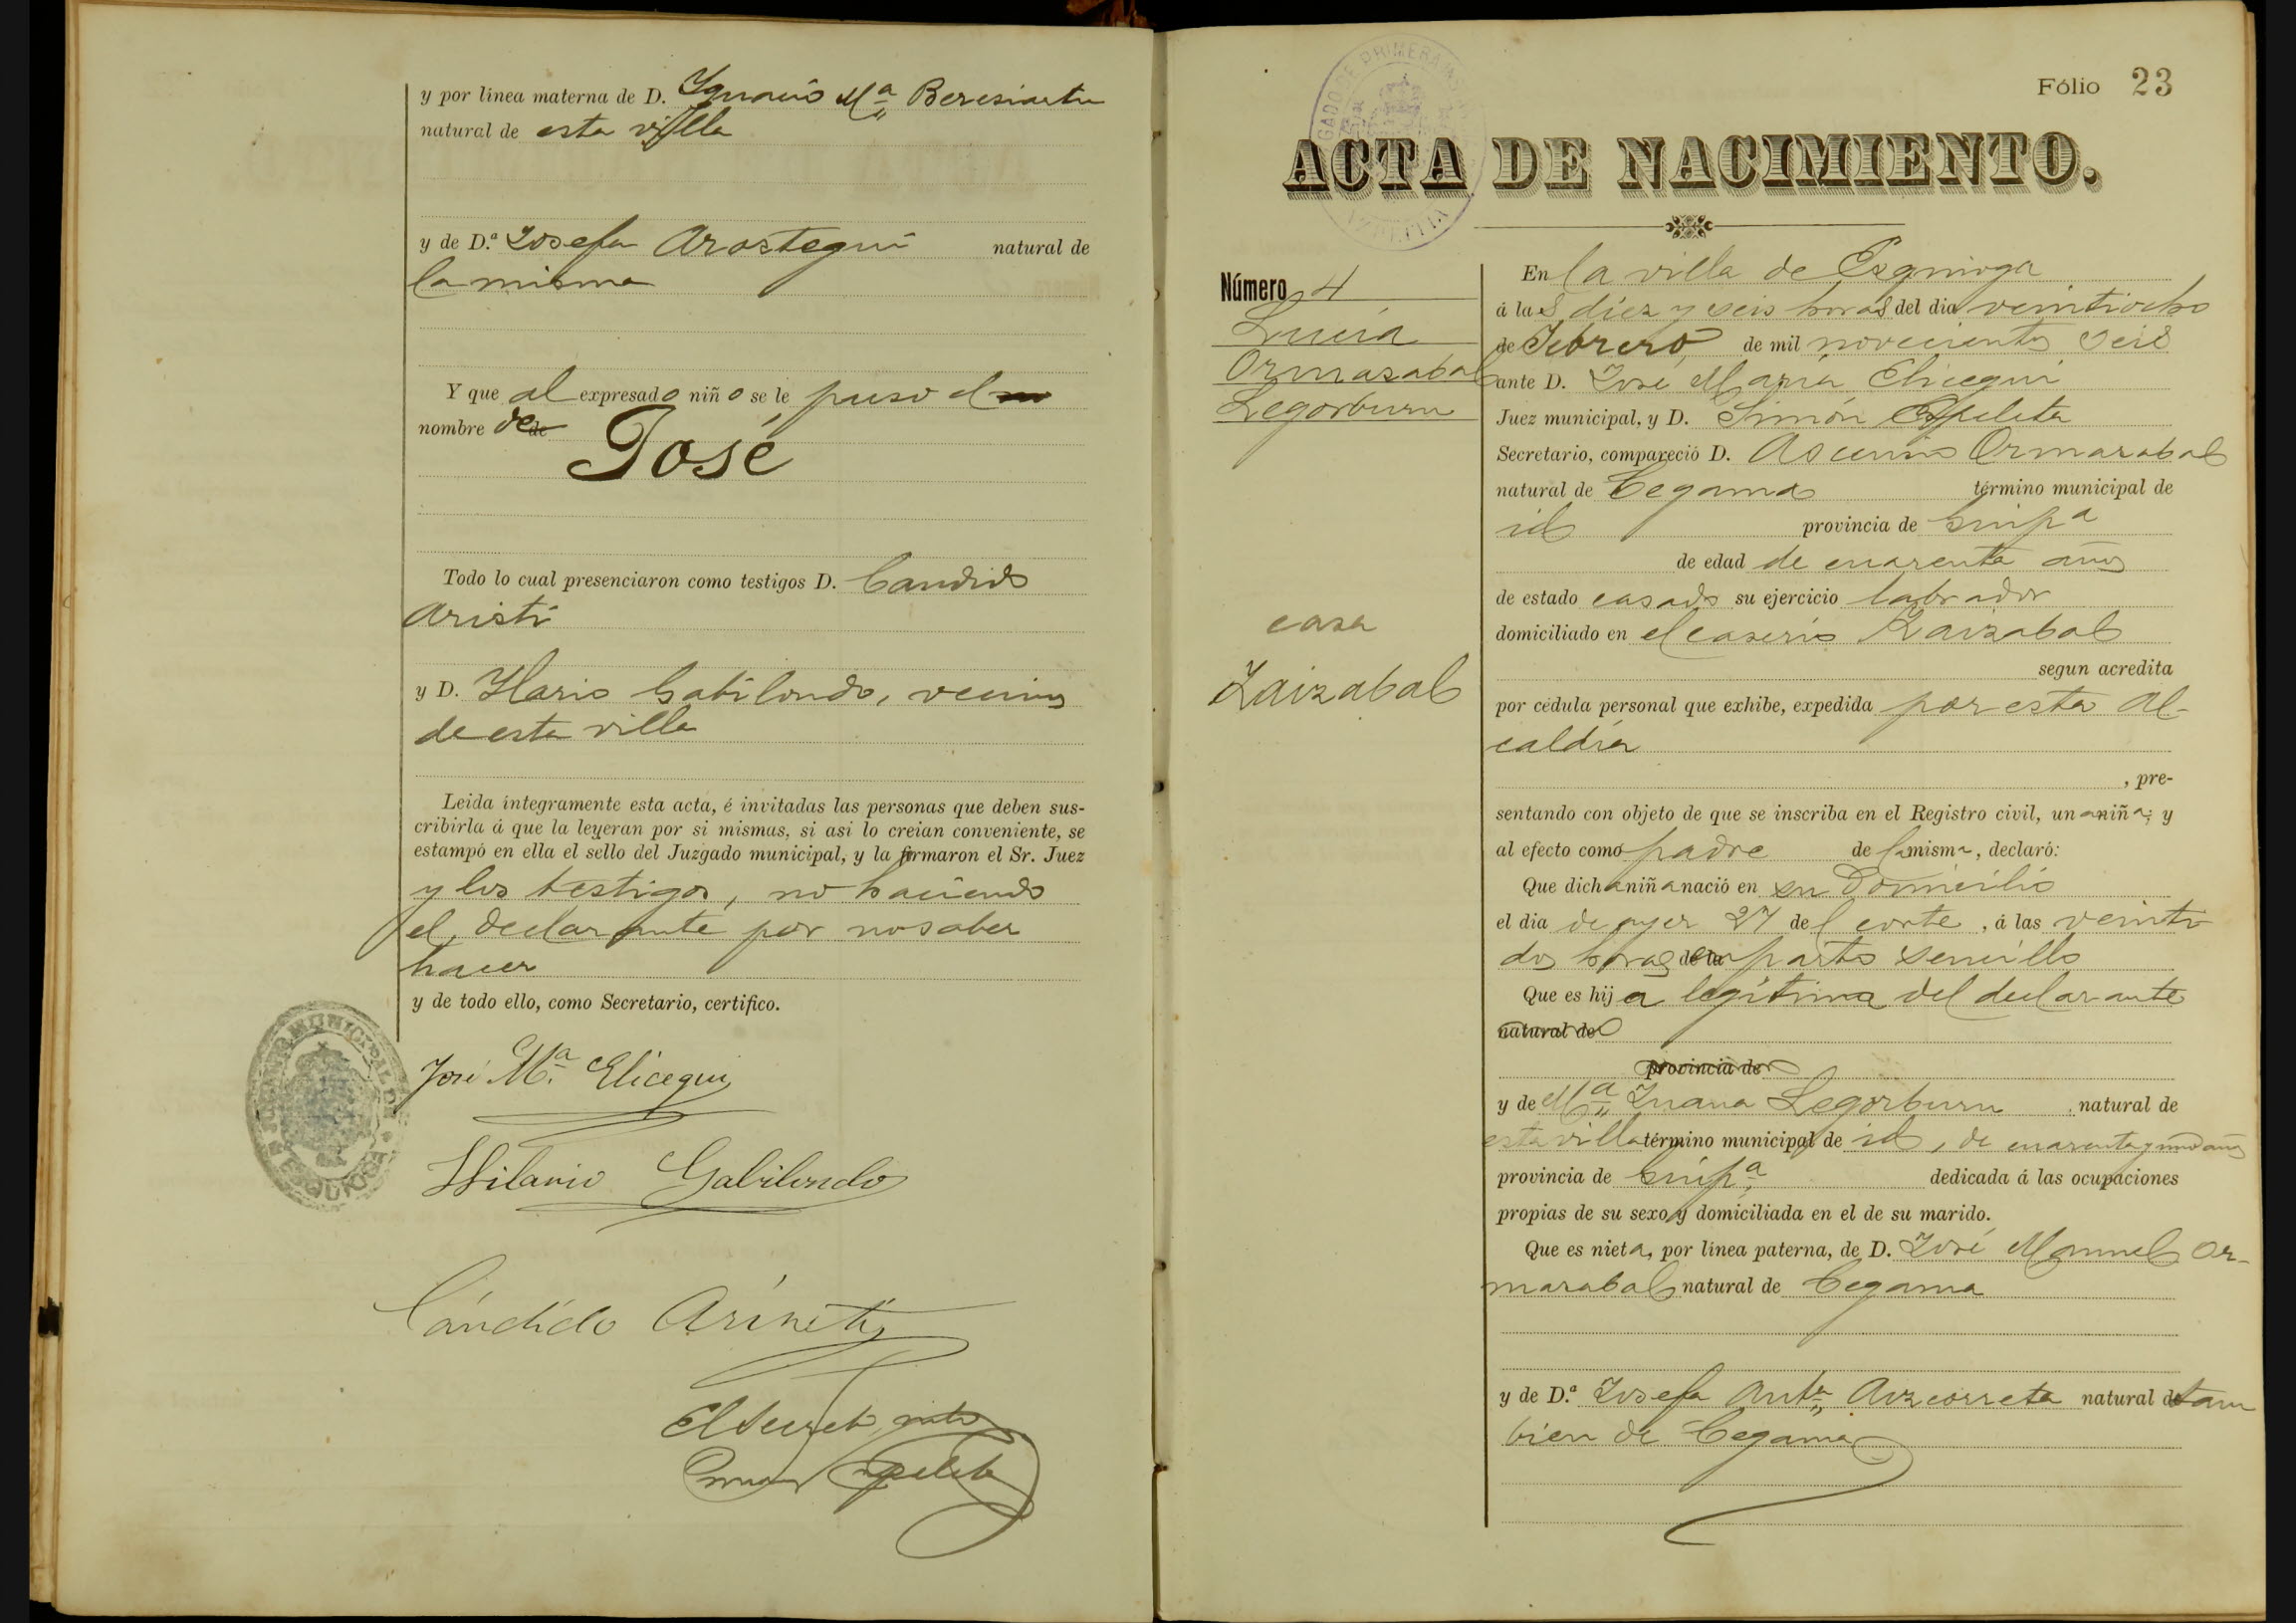 y por línea materna de D. Ygnacio Mª Beresiartu
natural de esta villa
y de D.ª Josefa Arostegui natural de
la misma
Y que al expresado niño se le puso el
nombre de de José
Todo lo cual presenciaron como testigos D. Candido
Aristi
y D. Ylario Gabilondo, vecinos
de esta villa
Leida íntegramente esta acta, é invitadas las personas que deben sus-
cribirla á que la leyeran por si mismas, si asi lo creian conveniente, se
estampó en ella el sello del Juzgado municipal, y la firmaron el Sr. Juez
y los testigos, no haciendo
el declarante por no saber
hacer
y de todo ello, como Secretario, certifico.
JUZGADO MUNICIPAL DE EZQUIOGA
José Mª. Elicegui
Hilario Gabilondo
Cándido Aristi
El Secretº
Simon Ezpeleta
Fólio 23
JUZGADO DE PRIMERA INSTANCIA
AZPEITIA
ACTA DE NACIMIENTO.
Número 4
Lucía
Ormazabal
Legorburu
casa
Zaizabal
En la villa de Ezquioga
á las diez y seis horas del dia veintiocho
de Febrero de mil novecientos seis
ante D. José María Elicegui
Juez municipal, y D. Simón Ezpeleta
Secretario, compareció D. Ascencio Ormazabal
natural de Cegama término municipal de
id provincia de Guipª
de edad de cuarenta años
de estado casado su ejercicio labrador
domiciliado en el caserio Zaizabal
segun acredita
por cédula personal que exhibe, expedida por esta Al-
caldía
, pre-
sentando con objeto de que se inscriba en el Registro civil, una niña; y
al efecto como padre de la misma, declaró:
Que dicha niña nació en su Domicilio
el dia de ayer 27 del corte, á las veinti
dos horas de la en parto sencillo
Que es hija legítima del declarante
natural de
provincia de
y de Mª Juana Legorburu natural de
esta villa término municipal de id, de cuarenta y un años
provincia de Guipª dedicada á las ocupaciones
propias de su sexo y domiciliada en el de su marido.
Que es nieta, por línea paterna, de D. José Manuel Or-
mazabal natural de Cegama
y de D.ª Josefa Antª Aizcorreta natural de tam
bien de Cegama